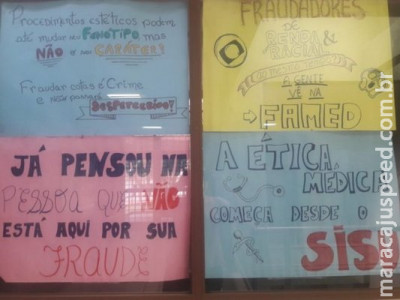 Procedimentos estéticos podem
até mudar seu FENÓTIPO, mas
NÃO o seu CARÁTER!
Fraudar cotas é Crime
e não passará
Despercebido!
FRAUDADORES
DE
RENDA &
RACIAL
A GENTE
VÊ NA
FAMED
JÁ PENSOU NA
PESSOA QUE NÃO
ESTÁ AQUI POR SUA
FRAUDE
A ÉTICA
MÉDICA
COMEÇA DESDE O
SISU
maracajuspeed.com.br